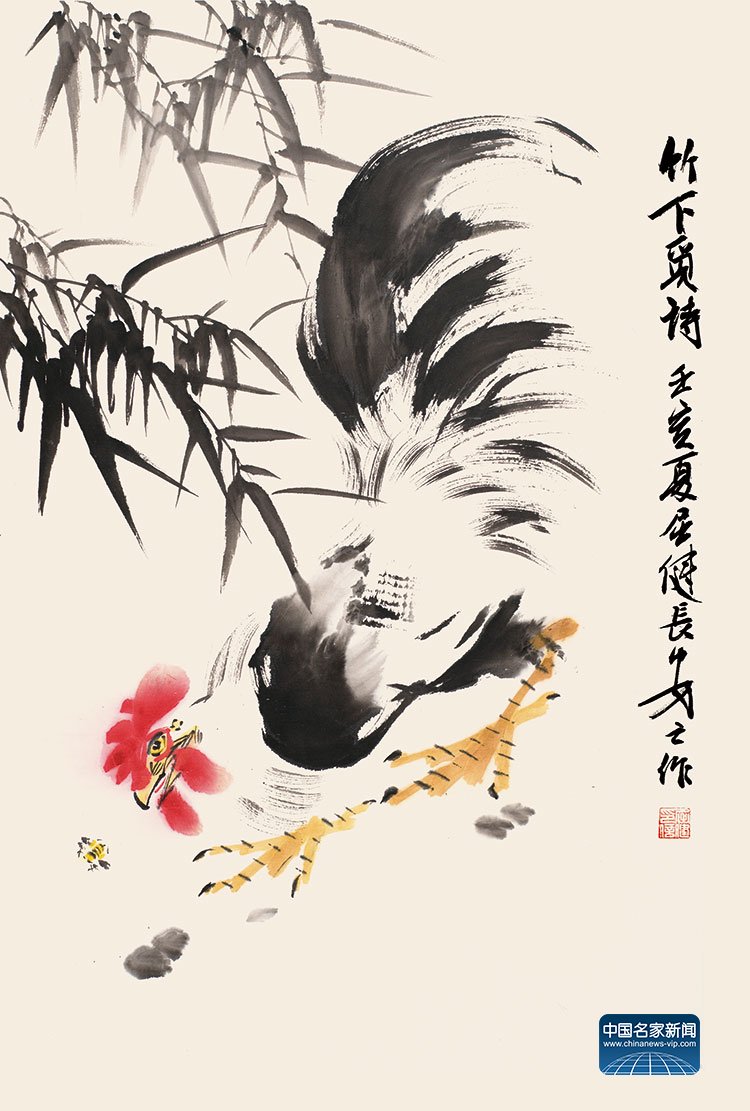 竹下覓詩 壬亥夏屈健長安之作
中国名家新闻
www.chinanews-vip.com